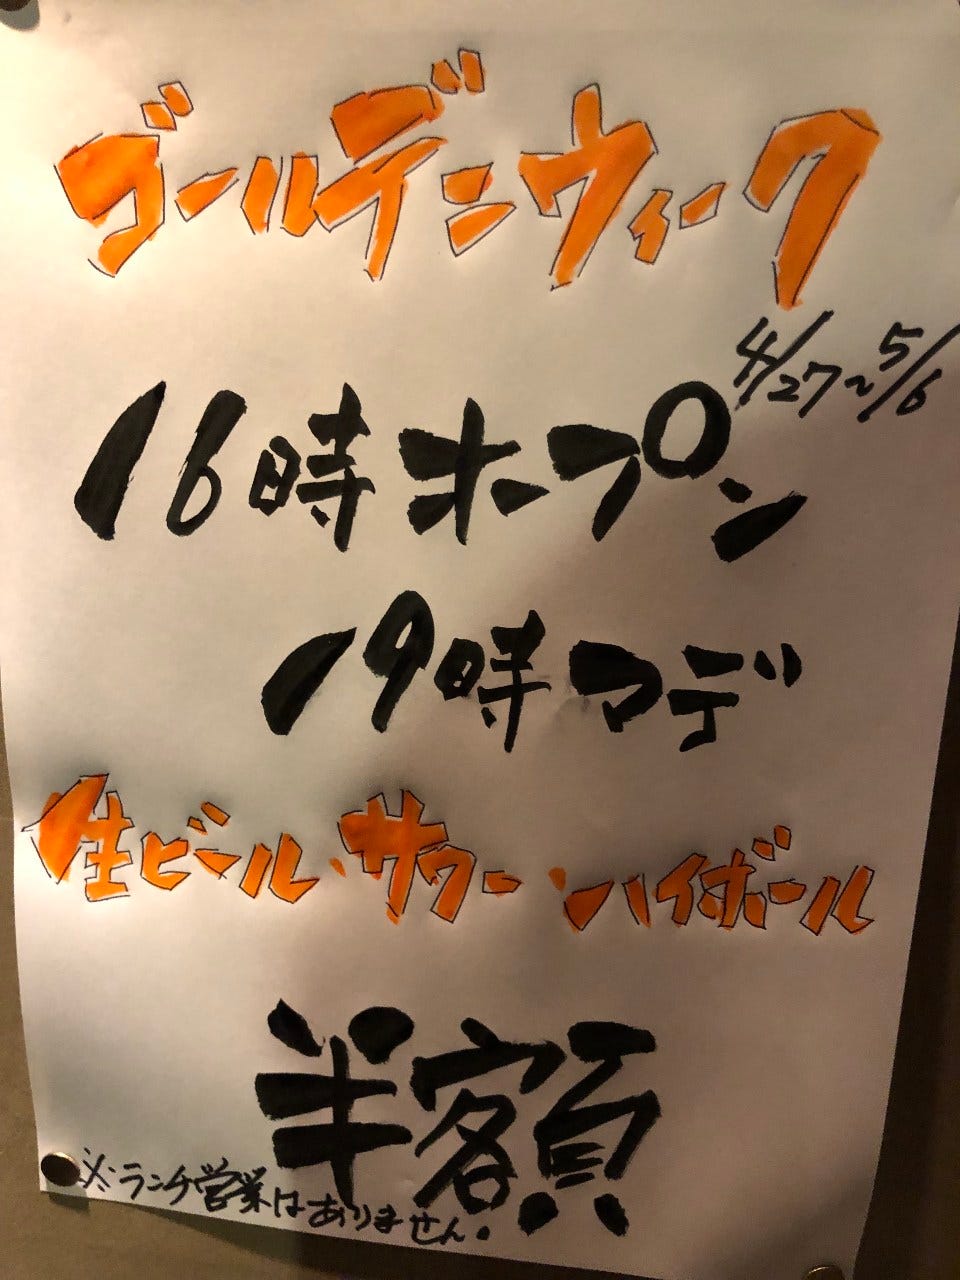 ゴールデンウィーク
4/27~5/6
16時オープン
19時マデ
生ビール・サワー・ハイボール
半額
※ランチ営業はありません。